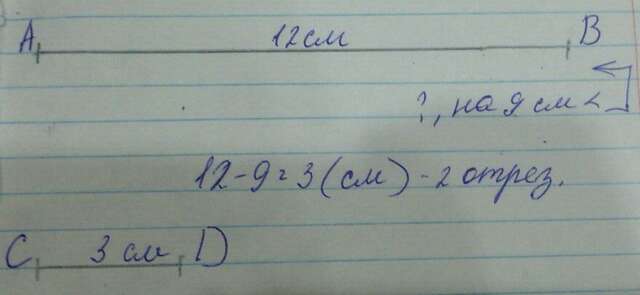 А 12 см В
?, на 9 см <
12-9=3 (см) - 2 отрез.
С 3 см D